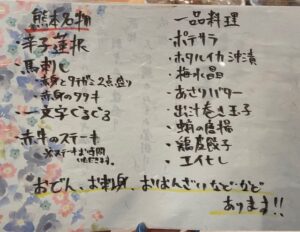 熊本名物
辛子蓮根
・馬刺し
・赤身とタテガミ2点盛り
・赤身のタタキ
・一文字ぐるぐる
・赤牛のステーキ
一品料理
・ポテサラ
・ホタルイカ沖漬
・梅水晶
・あさりバター
・出汁巻き玉子
・蛸の唐揚
・鶏皮餃子
・エイヒレ
おでん、お刺身、おばんざいなどなど
あります!!